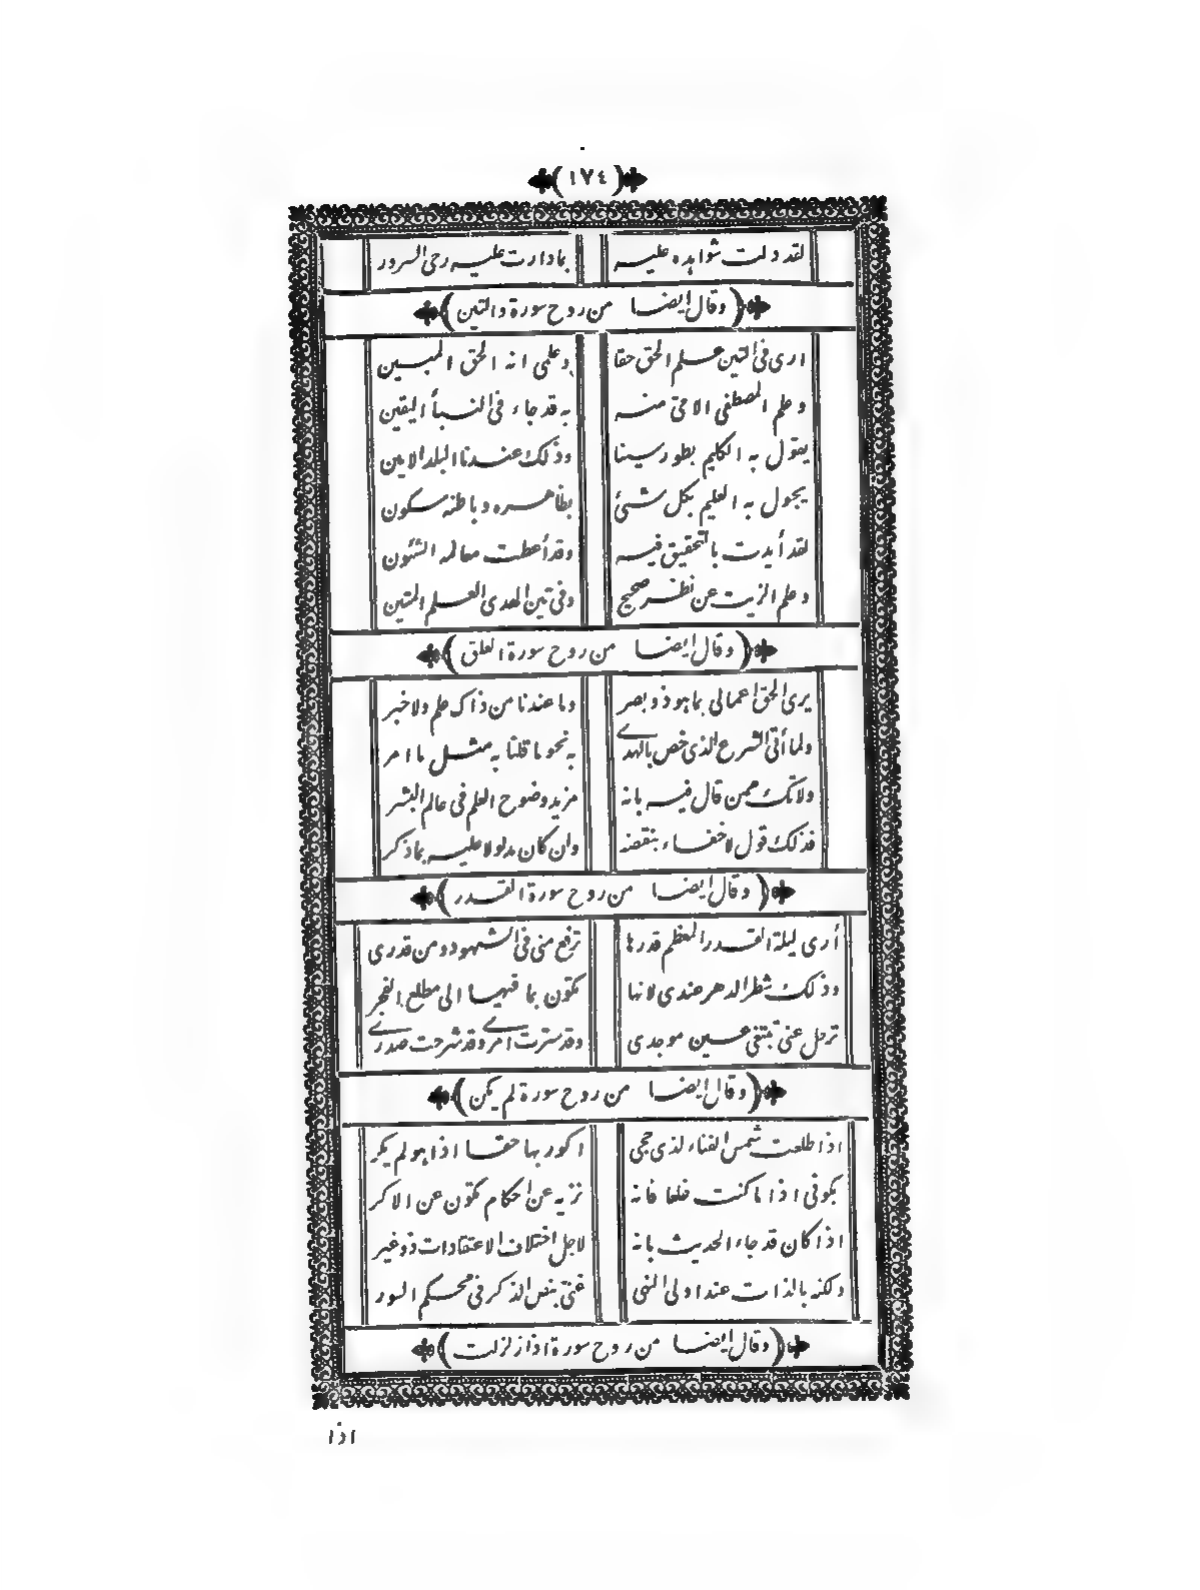 ١٧٤
لقد دلت شواهده عليه بما دارت عليه رحى السرور
وقال ايضا من روح سورة والتين
ارى فى التين علم الحق حقا وعلمى انه الحق المبين
وعلم المصطفى الامى منه به قد جاء فى النبأ اليقين
يقول به الكليم بطور سينا وذلك عندنا البلد الامين
يجول به العليم بكل شئ بظاهره وباطنه سكون
لقد أيدت بالتحقيق فيه وقد أعطت معالمه الشئون
وعلم الزيت عن نظر صحيح وفى تين الهدى العلم المتين
وقال ايضا من روح سورة العلق
يرى الحق اعمالى بما هو ذو بصر وما عندنا من ذاك علم ولا خبر
ولما أتى الشرع الذى خص بالهدى به نحو ما قلنا به مثل ما امر
ولا تك ممن قال فيه بانه مزيد وضوح العلم فى عالم البشر
فذلك قول لا خفاء بنقضه وان كان مدلولا عليه بما ذكر
وقال ايضا من روح سورة القدر
أرى ليلة القدر المعظم قدرها ترفع منى فى الشهود ومن قدرى
وذلك شطر الدهر عندى لانها تكون بما فيها الى مطلع الفجر
ترحل عنى تبتغى عين موجدى وقد سترت امرى وقد شرحت صدرى
وقال ايضا من روح سورة لم يكن
اذا طلعت شمس الفناء لذى حجى اكور بها حقا اذا هو لم يكر
بكونى اذا ما كنت خلعا فانه نزيه عن احكام تكون عن الاكر
اذا كان قد جاء الحديث بانه لاجل اختلاف الاعتقادات ذو غير
ولكنه بالذات عند اولى النهى غنى بنص الذكر فى محكم السور
وقال ايضا من روح سورة اذا زلزلت
اذا